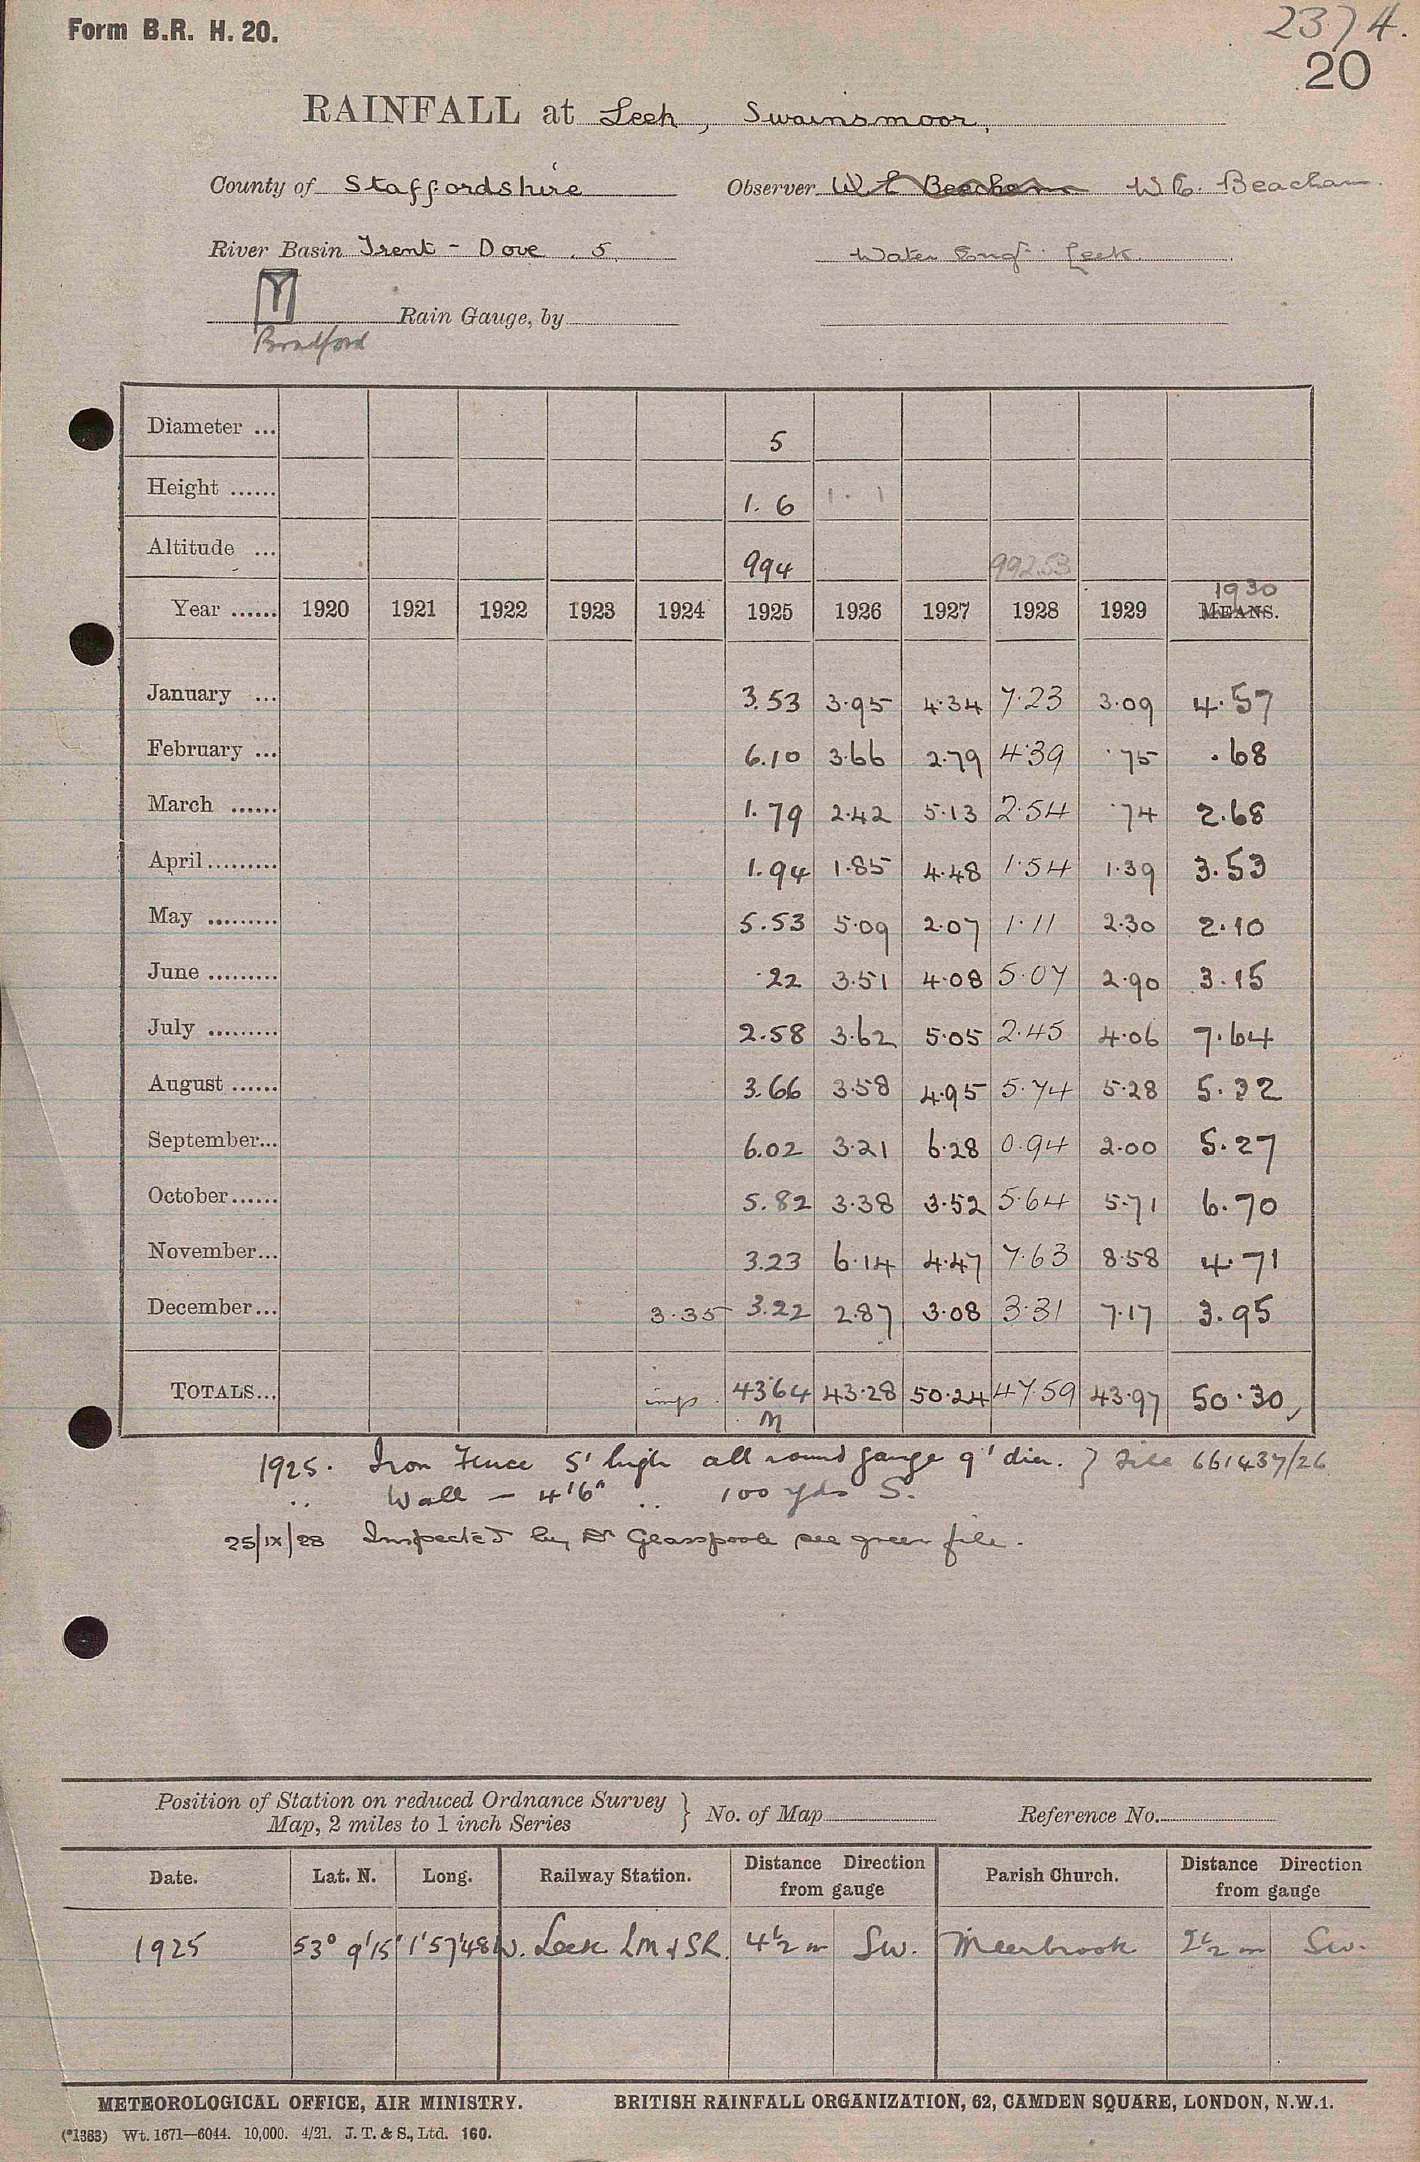 Form B.R. H. 20.
2374.
20
RAINFALL at Leek, Swainsmoor,
County of Staffordshire Observer W E Beacham W E. Beacham
River Basin Trent - Dove . 5 Water Engr. Leek.
Rain Gauge, by
Bradford
Diameter ... 5
Height ...... 1. 6 1. 1
Altitude ... 994 992.53
1930
Year ...... 1920 1921 1922 1923 1924 1925 1926 1927 1928 1929 MEANS.
January ... 3.53 3.95 4.34 7.23 3.09 4.57
February ... 6.10 3.66 2.79 4.39 .75 .68
March ...... 1.79 2.42 5.13 2.54 .74 2.68
April......... 1.94 1.85 4.48 1.54 1.39 3.53
May ......... 5.53 5.09 2.07 1.11 2.30 2.10
June ......... .22 3.51 4.08 5.07 2.90 3.15
July ......... 2.58 3.62 5.05 2.45 4.06 7.64
August ...... 3.66 3.58 4.95 5.74 5.28 5.32
September... 6.02 3.21 6.28 0.94 2.00 5.27
October...... 5.82 3.38 3.52 5.64 5.71 6.70
November... 3.23 6.14 4.47 7.63 8.58 4.71
December... 3.35 3.22 2.87 3.08 3.31 7.17 3.95
TOTALS... imp. 43.64 43.28 50.24 47.59 43.97 50.30
M
1925. Iron Fence 5' high all round gauge 9' dia. } File 661437/26
.. Wall — 4'6" .. 100 yds S.
25/IX/28 Inspected by Dr Glasspoole see green file.
Position of Station on reduced Ordnance Survey
Map, 2 miles to 1 inch Series } No. of Map Reference No.
Date. Lat. N. Long. Railway Station. Distance Direction from gauge Parish Church. Distance Direction from gauge
1925 53° 9'15" 1°57'48W. Leek LM & SR. 4½ m SW. Meerbrook 2½ m SW.
METEOROLOGICAL OFFICE, AIR MINISTRY. BRITISH RAINFALL ORGANIZATION, 62, CAMDEN SQUARE, LONDON, N.W.1.
(*1383) Wt. 1671—6044. 10,000. 4/21. J. T. & S., Ltd. 160.